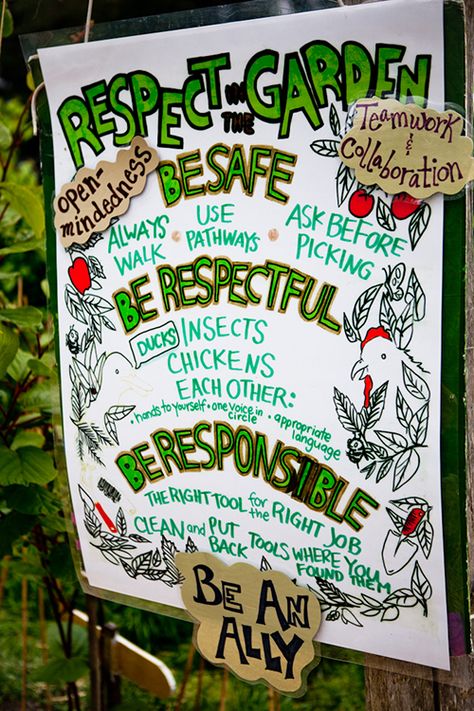 RESPECT IN THE GARDEN
Teamwork & Collaboration
open-mindedness
BE SAFE
ALWAYS WALK
USE PATHWAYS
ASK BEFORE PICKING
BE RESPECTFUL
DUCKS INSECTS
CHICKENS
EACH OTHER:
• hands to yourself • one voice in circle • appropriate language
BE RESPONSIBLE
THE RIGHT TOOL for the RIGHT JOB
CLEAN and PUT BACK TOOLS WHERE YOU FOUND THEM
BE AN ALLY